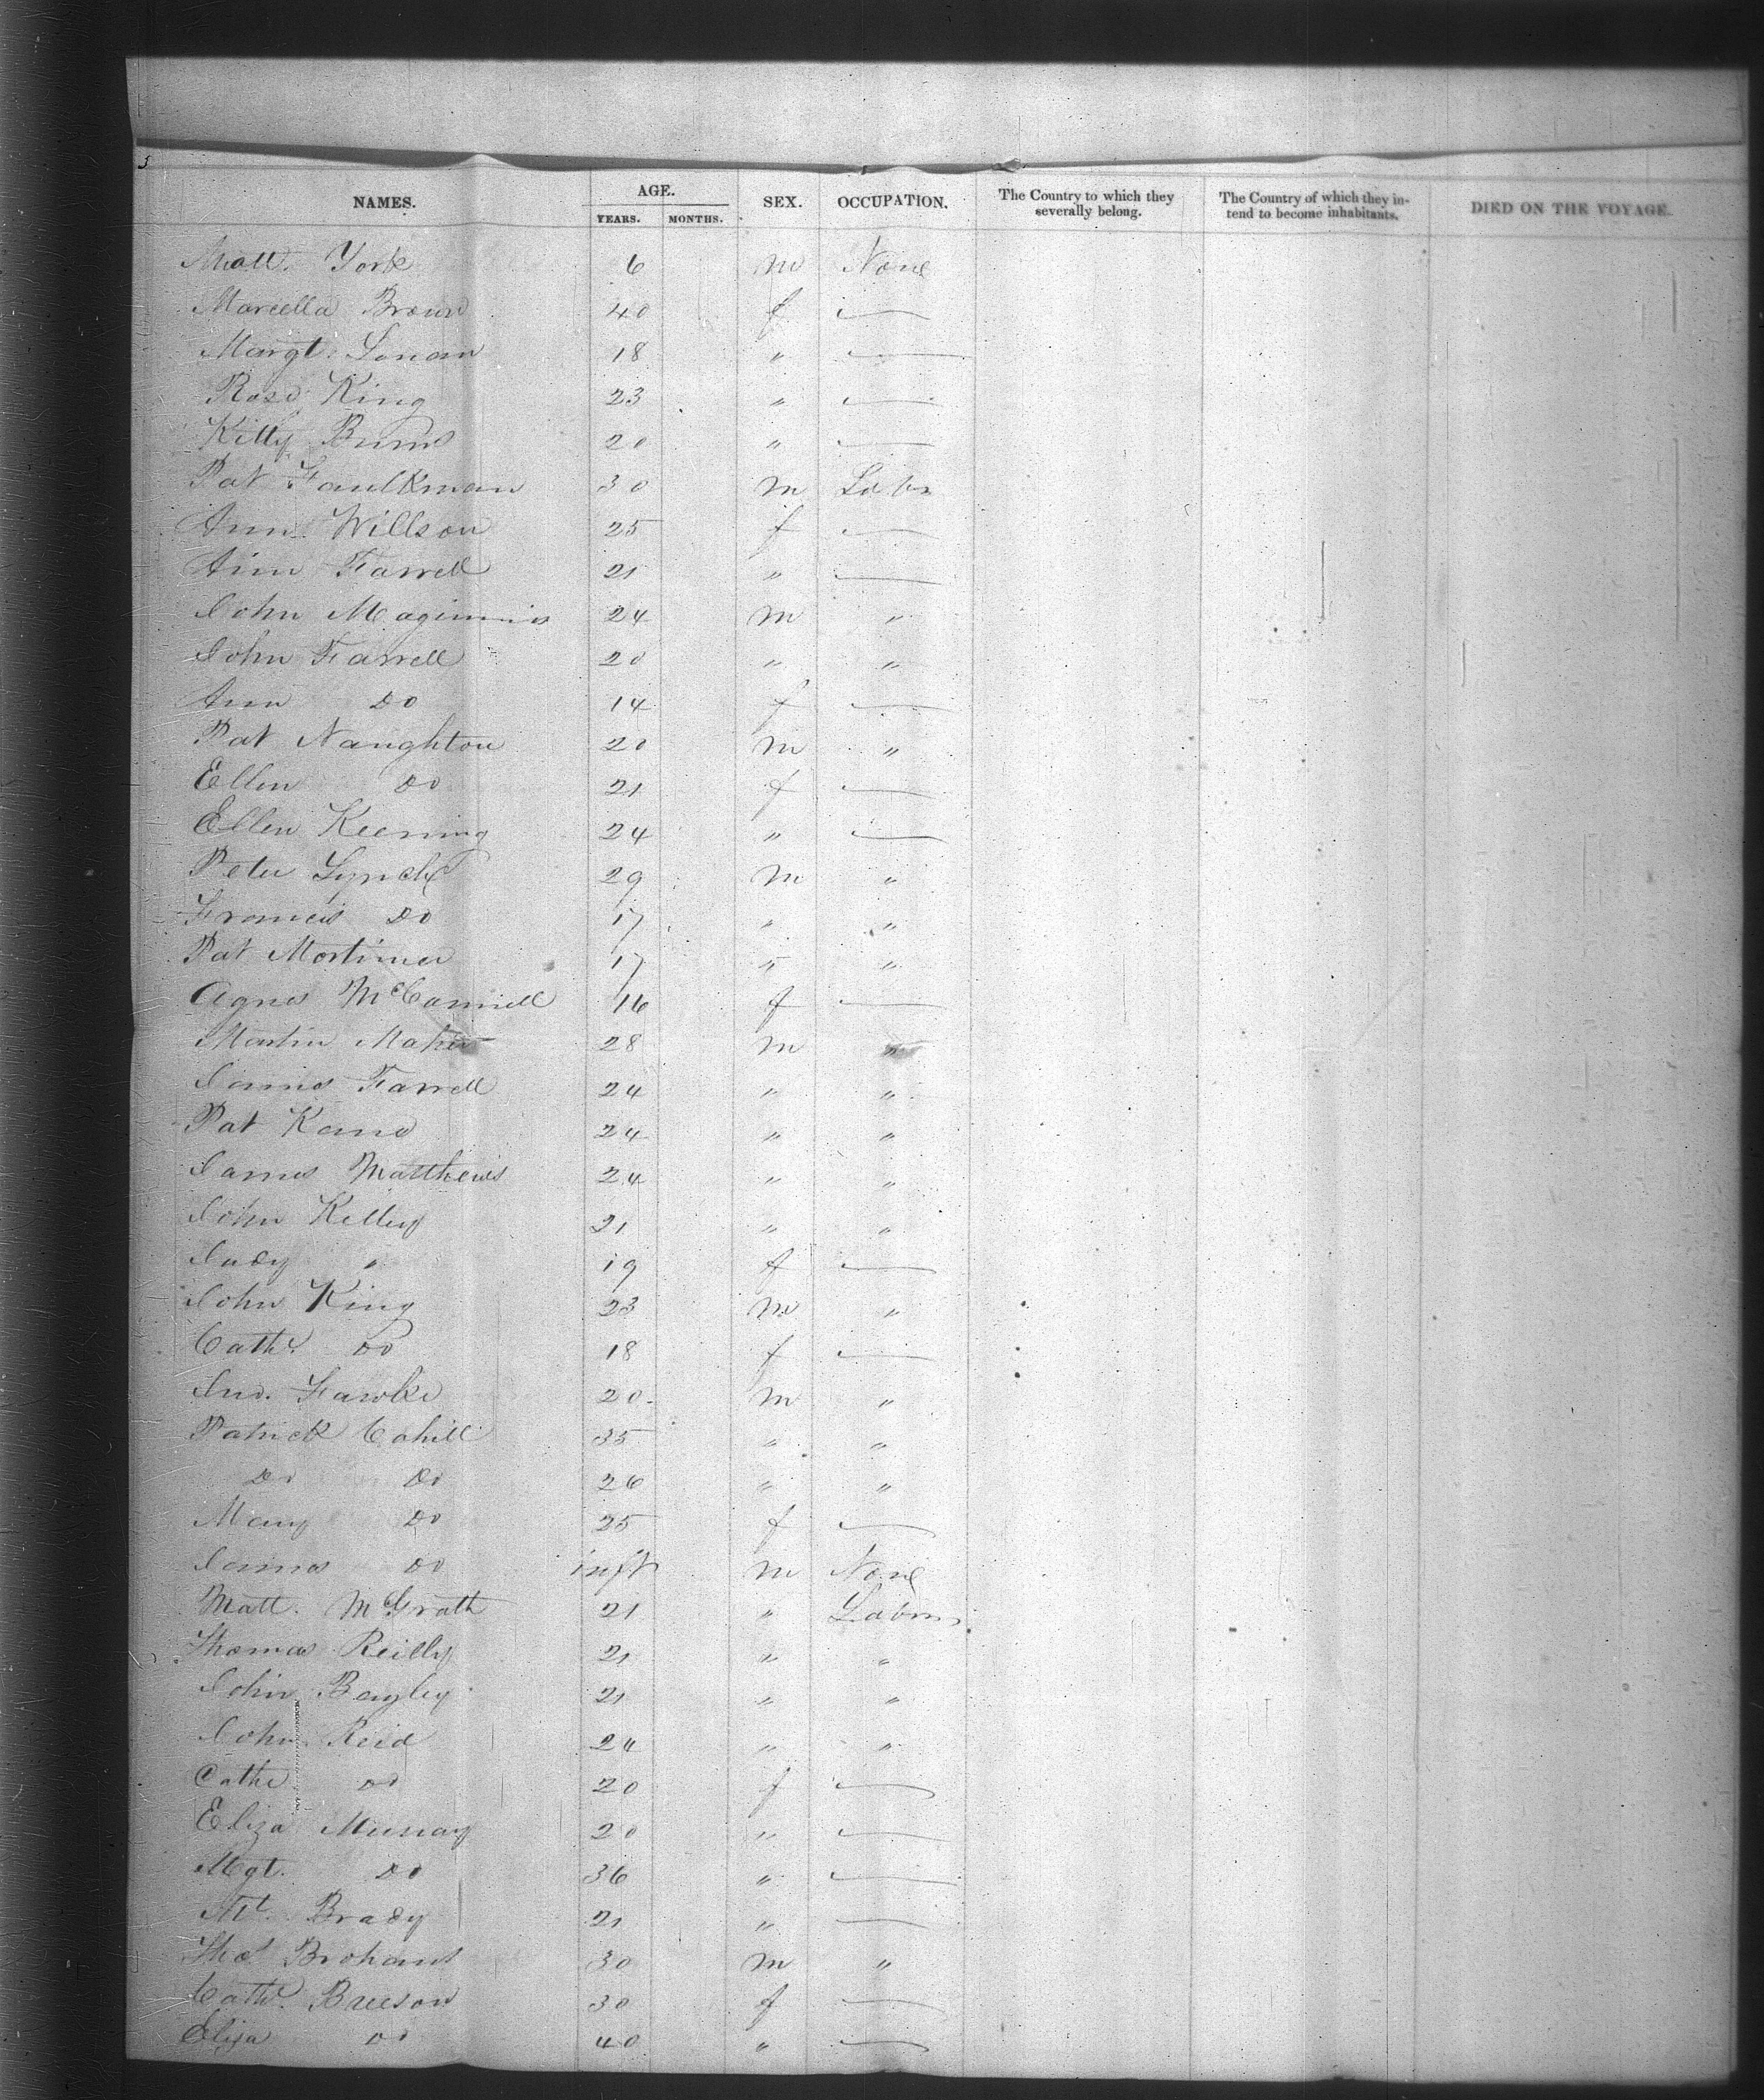 NAMES. AGE. SEX. OCCUPATION. The Country to which they severally belong. The Country of which they intend to become inhabitants. DIED ON THE VOYAGE.
YEARS. MONTHS.
Matt. York 6 m None
Marcella Brown 40 f —
Margt. Lenan 18 " —
Rose King 23 " —
Kitty Burns 20 " —
Pat Faulkman 30 m Labr
Ann Willson 25 f —
Ann Farrell 21 " —
John Maginnis 24 m "
John Farrell 20 " "
Ann Do 14 f —
Pat Naughton 20 m "
Ellen Do 21 f —
Ellen Keening 24 " —
Peter Lynch 29 m "
Francis Do 17 " "
Pat Mortimer 17 " "
Agnes McCannell 16 f —
Martin Maher 28 m "
James Farrell 24 " "
Pat Kane 24 " "
James Matthews 24 " "
John Kelley 21 " "
Judy " 19 f —
John King 23 m "
Cathe Do 18 f —
Jno. Fawke 20 m "
Patrick Cahill 35 " "
Do Do 26 " "
Mary Do 25 f —
James Do inft m None
Matt. McGrath 21 " Labr
Thomas Reilly 21 " "
John Bayley 21 " "
John Reid 24 " "
Cathe Do 20 f —
Eliza Murray 20 " —
Mgt. Do 36 " —
Mt. Brady 21 " —
Thos Brohant 30 m "
Cathe. Breeson 30 f —
Eliza Do 40 " —